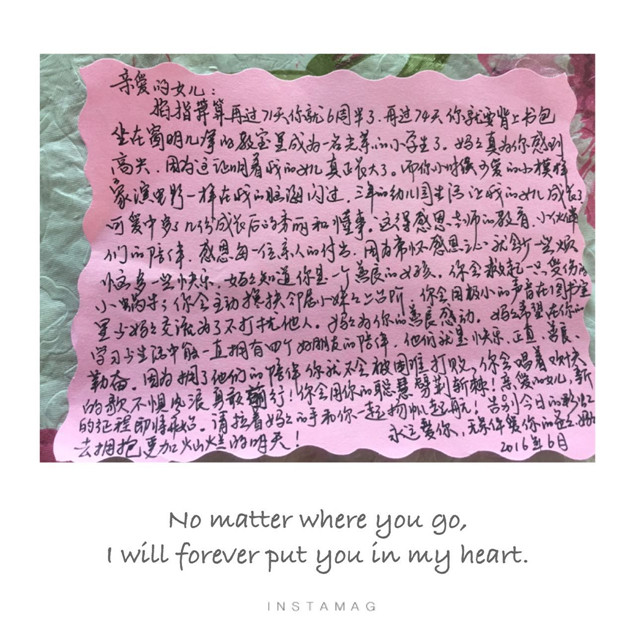 亲爱的女儿：
掐指算算再过71天你就6周半了．再过74天你就要背上书包
坐在窗明几净的教室里成为一名光荣的小学生了．妈妈真为你感到
高兴．因为这证明着我的女儿真正长大了．而你小时候可爱的小模样
像演电影一样在我的脑海闪过．三年的幼儿园生活让我的女儿成长了
可爱中多了几份成长后的秀丽和懂事．这得感恩老师的教育．小伙伴
们的陪伴．感恩每一位亲人的付出．因为常怀感恩之心就会少一些烦
恼多一些快乐．妈妈知道你是一个善良的女孩．你会救起一只受伤的
小蜗牛；你会主动搀扶邻居小妹妹上台阶 你会用极小的声音在图书室
里与妈妈交流为了不打扰他人．妈妈为你的善良感动．妈妈希望在你的
学习与生活中能一直拥有四个好朋友的陪伴．他们就是快乐．正直．善良．
勤奋．因为拥了他们的陪伴你就不会被困难打败．你会唱着欢快
的歌不惧风浪勇敢前行！你会用你的聪慧劈荆斩棘！亲爱的女儿，新
的征程即将开始．请拉着妈妈的手和你一起扬帆起航！告别今日的
去拥抱更加火火的明天！
永远爱你、无条件爱你的 妈妈
2016年6月
No matter where you go,
I will forever put you in my heart.
INSTAMAG